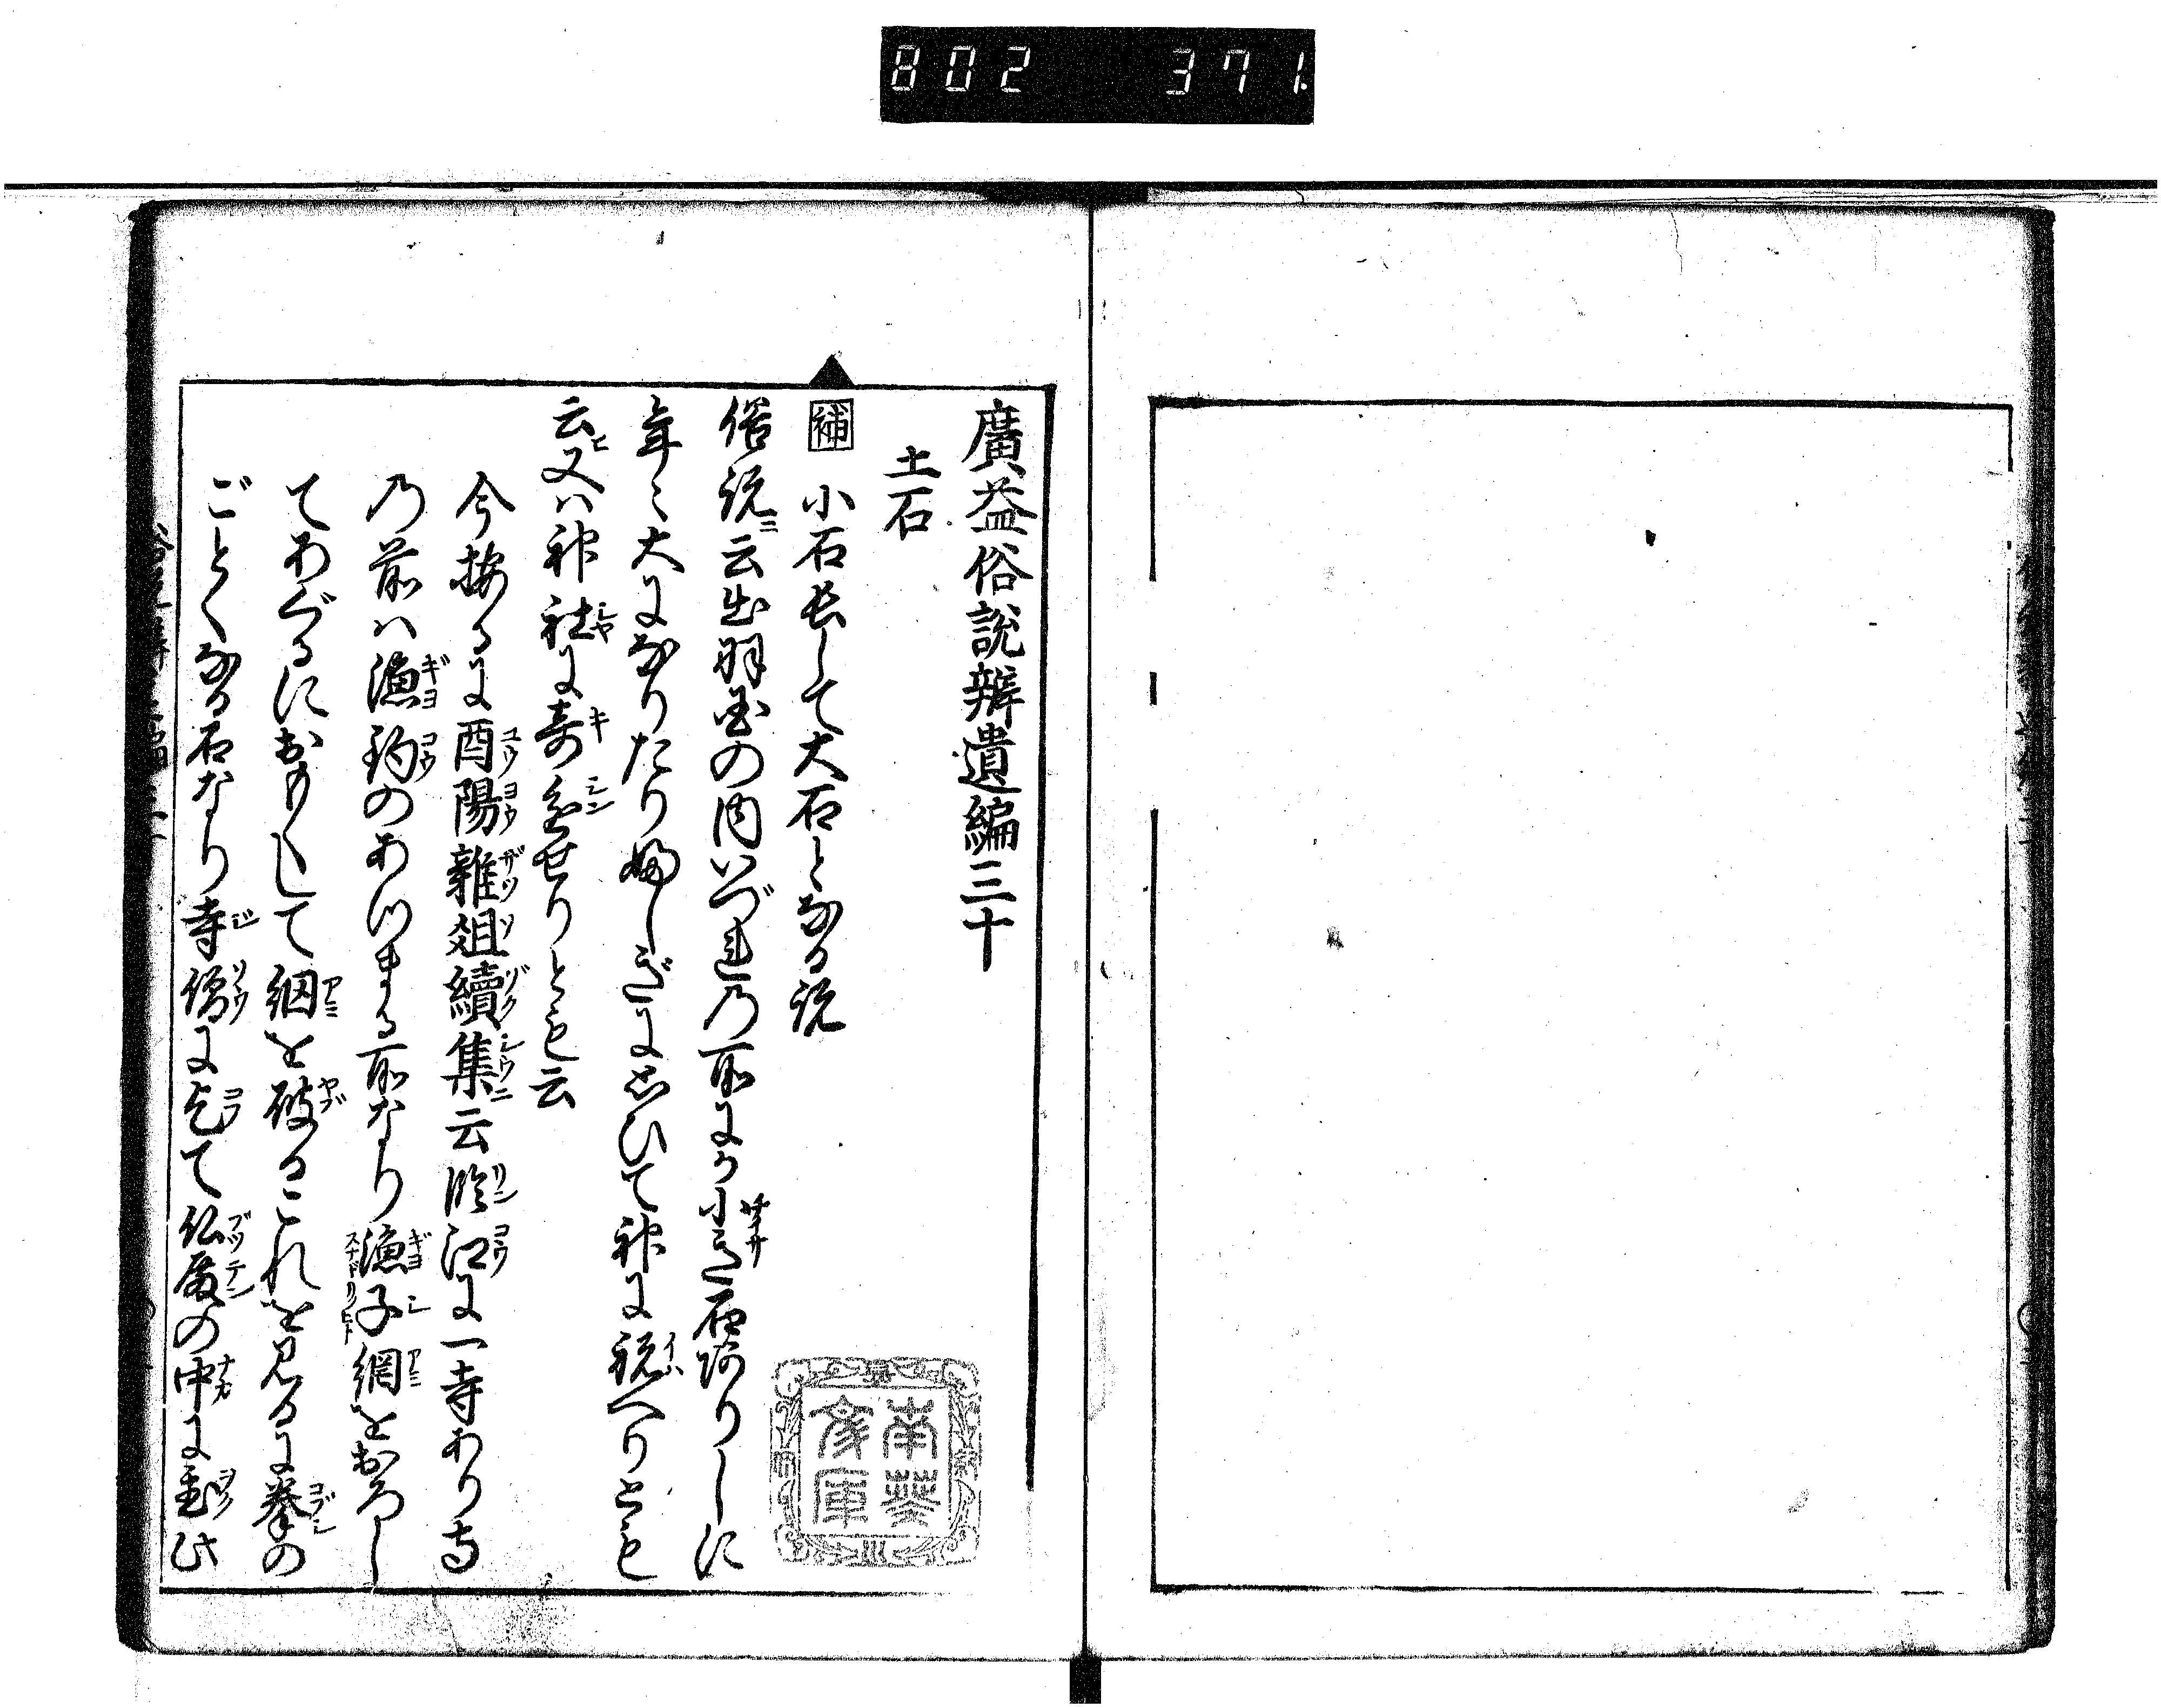 802 371.
廣益俗説辨遺編三十
土石
補 小石長して大石となる説
俗説ニ云出羽国の内いづれ乃所にか小き石ありしに
年々大になりたり ふしぎに思ひて神に祝へりとも
云又ハ神社に寄進せりとも云
今按るに酉陽雜俎續集云臨江に一寺あり寺
乃前ハ漁釣のあつまる所なり漁子網をおろし
てあぐるにおもくして網を破るこれを見るに拳の
ごとくなる石なり寺僧に乞て仏殿の中に置此
南葵文庫